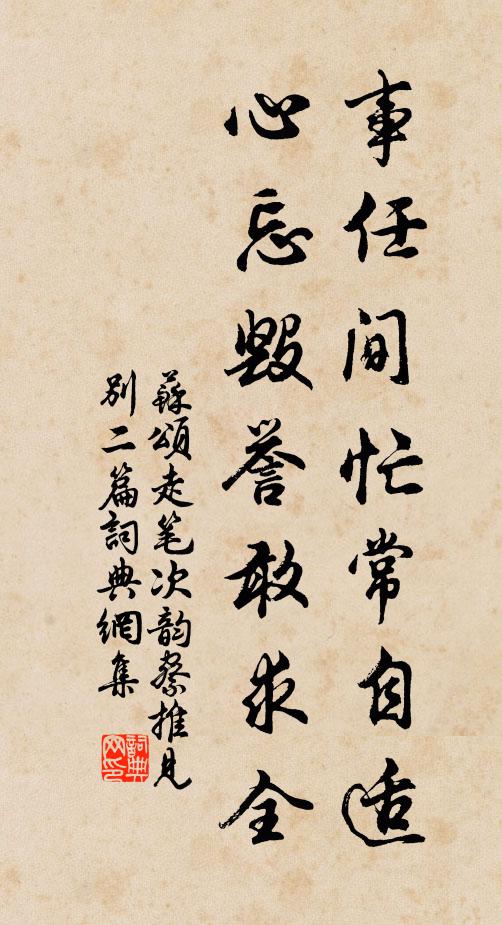 事任閒忙常自适
心忘毀誉敢求全
蘇頌走笔次韵蔡推見
別二篇詞典網集
詞典
网印